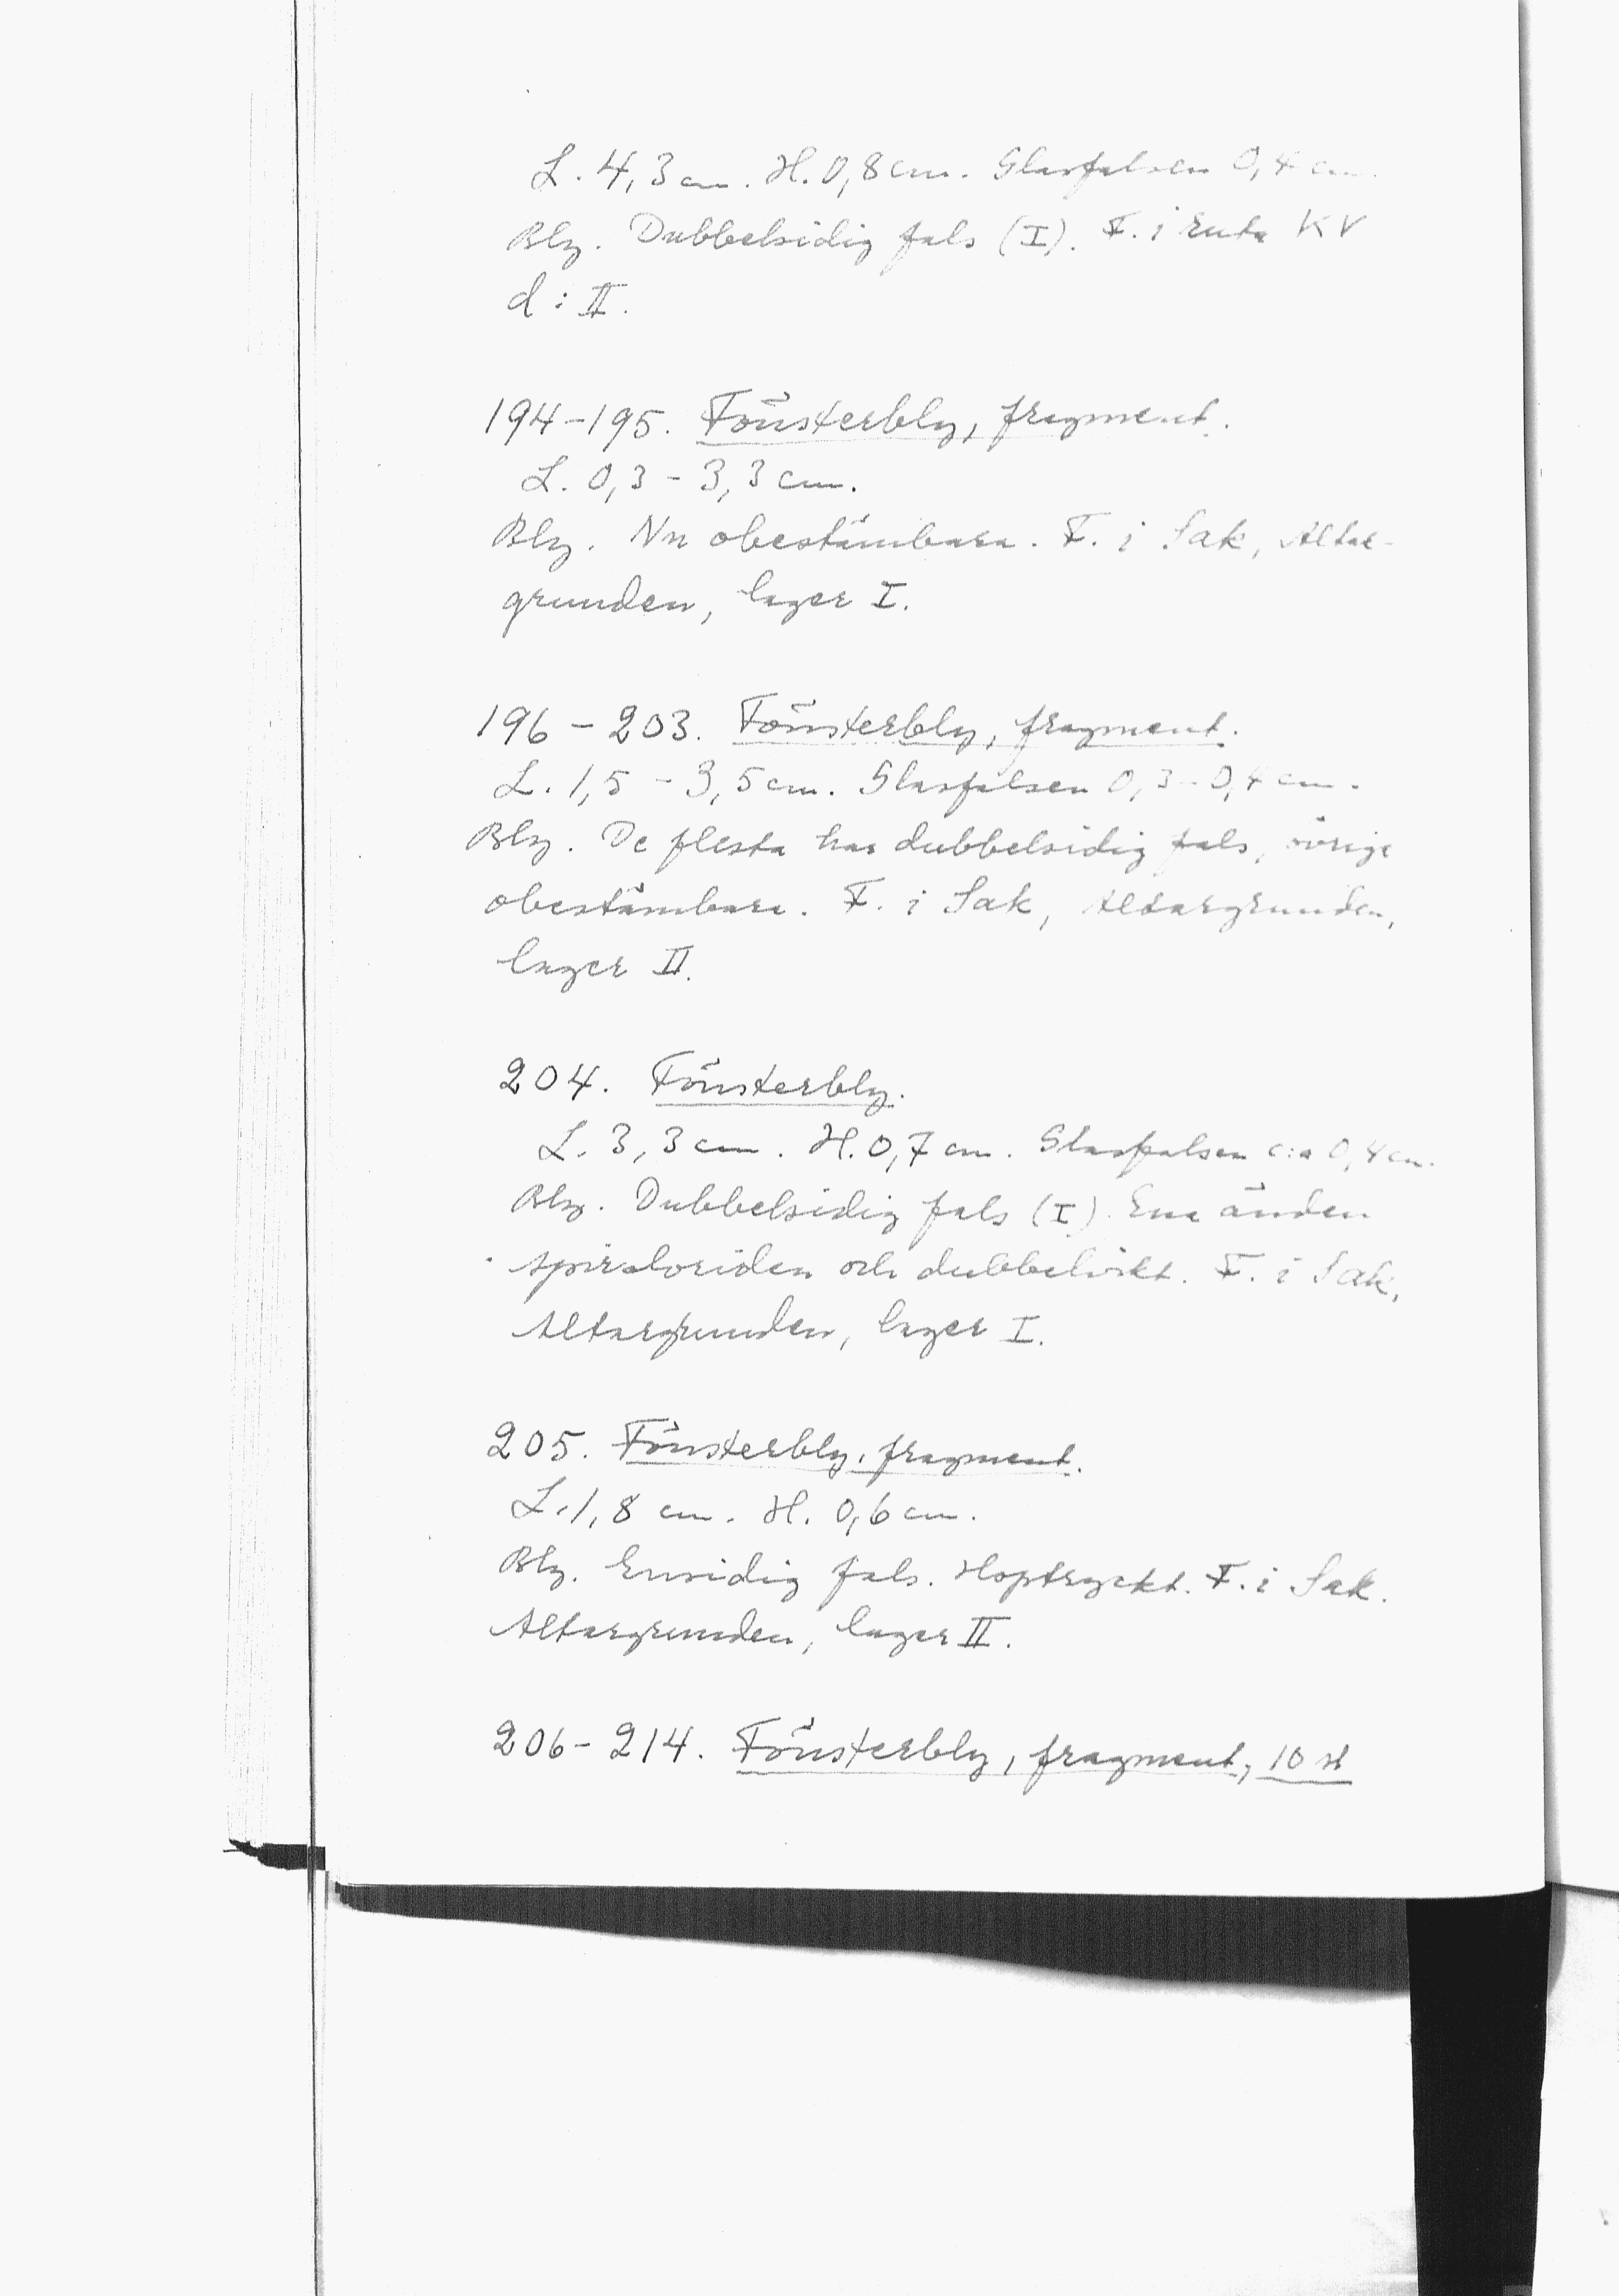 L. 4,3 cm. H. 0,8 cm. Glasfalsen 0,4 cm.
Bly. Dubbelsidig fals (I). F. i Ruta KV
d : II.
194-195. Fönsterbly, fragment.
L. 0,3 - 3,3 cm.
Bly. Nu obestämbara. F. i Sak, Altar-
grunden, lager I.
196 - 203. Fönsterbly, fragment.
L. 1,5 - 3,5 cm. Glasfalsen 0,3 - 0,4 cm.
Bly. De flesta har dubbelsidig fals, övriga
obestämbara. F. i Sak, Altargrunden,
lager II.
204. Fönsterbly.
L. 3,3 cm. H. 0,7 cm. Glasfalsen c:a 0,4 cm.
Bly. Dubbelsidig fals (I). Ena änden
spiralvriden och dubbelvikt. F. i Sak,
Altargrunden, lager I.
205. Fönsterbly, fragment.
L. 1,8 cm. H. 0,6 cm.
Bly. Ensidig fals. Hoptryckt. F. i Sak.
Altargrunden, lager II.
206 - 214. Fönsterbly, fragment, 10 st